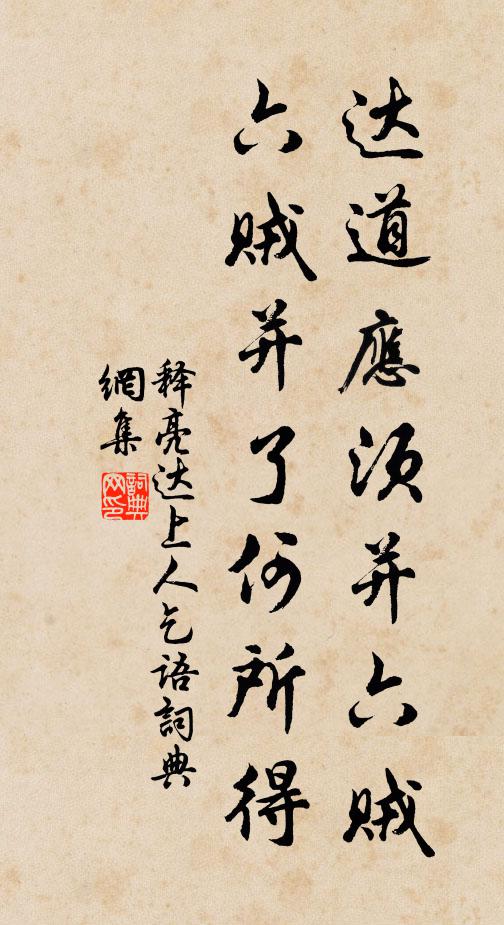 达道應须并六贼
六贼并了何所得
释亮达上人乞语詞典
網集
詞典
网印